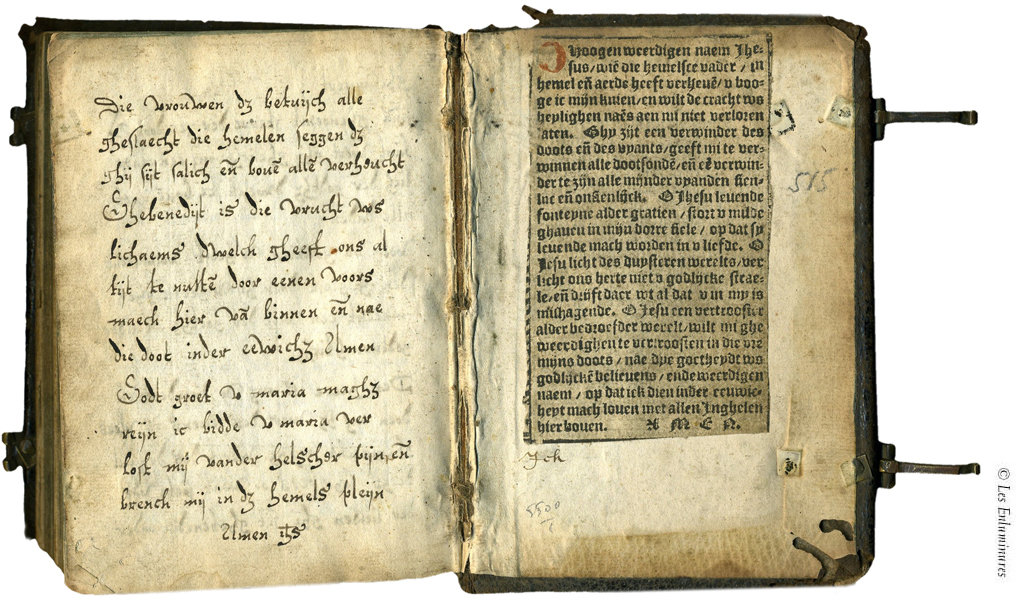 Die vrouwen dz betuijch alle
gheslaecht die hemelen seggen dz
ghij sijt salich en̄ bouē allē verhoucht
Ghebenedijt is die vrucht vvs
lichaems dwelch gheeft ons al
tijt te nuttē door eenen voors
maech hier vā binnen en̄ nae
die doot inder eewichz Amen
Godt groet v maria maghz
reijn ic bidde v maria ver
lost mij vander helscher pijn, en̄
brench mij in dz hemels pleijn
Amen ihs
IN hoogen weerdigen naem Jhe-
sus/wiē die hemelsce vader/in
hemel en̄ aerde heeft verheuē/v boo-
ge ic mijn knien/en wilt de cracht ws
heylighen naēs aen mi niet verloren
laten. Ghy zijt een verwinder des
doots en̄ des vyants/geeft mi te ver-
winnen alle dootsondē/en̄ eē verwin-
der te zijn alle mijnder vyanden sien-
lic en̄ onsienlijck. O Jhesu leuende
fonteyne alder gratien/stort v milde
ghauen in mijn dorre siele/op dat sy
leuende mach worden in v liefde. O
Jesu licht des duysteren werelts/ver
licht ons herte met v godlijcke strae-
le/en̄ drijft daer wt al dat v in my is
mishagende. O Jesu een vertrooster
alder bedroefder werelt/wilt mi ghe
weerdighen te vertroosten in die vre
mijns doots/nae dye goetheydt ws
godlijckē belieuens/ende weerdigen
naem/op dat ick dien inder eeuwic-
heyt mach louen met allen Inghelen
hier bouen. A M E N.
515
Ick
5500
© Les Enluminures